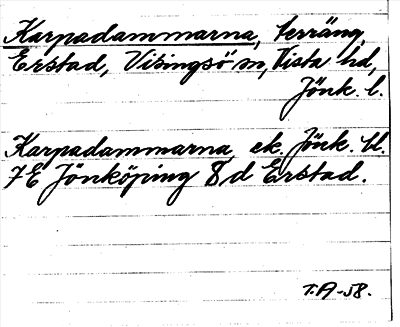 Karpadammarna, terräng,
Erstad, Visingsö sn, Vista hd,
Jönk. l.
Karpadammarna ek. Jönk. bl.
7E Jönköping 8d Erstad.
T.A-58.